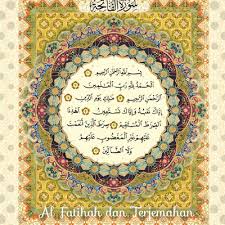 سورة الفاتحة
بسم الله الرحمن الرحيم
الحمد لله رب العلمين
الرحمن الرحيم ملك يوم الدين
إياك نعبد وإياك نستعين اهدنا
الصراط المستقيم صراط الذين أنعمت
عليهم غير المغضوب عليهم
ولا الضالين
Al Fatihah dan Terjemahan